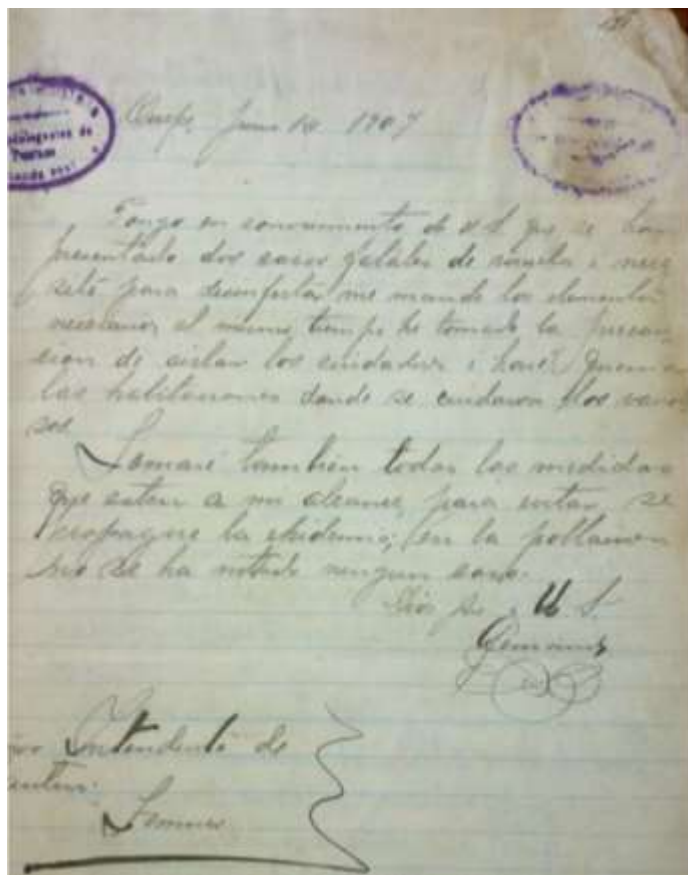 Junio 14 1907
Pongo en conocimiento de U.S. que se han
presentado dos casos fatales de viruela i nece
sito para desinfectar me mande los elementos
necesarios al mismo tiempo he tomado la precau
cion de aislar los cuidadores i hacer quemar
las habitaciones donde se cuidaron los
Tomaré tambien todas las medidas
que esten a mi alcance para evitar se
propague la epidemia; en la poblacion
no se ha notado ningun caso.
Dios gue a U. S.
Intendente de
Temuco